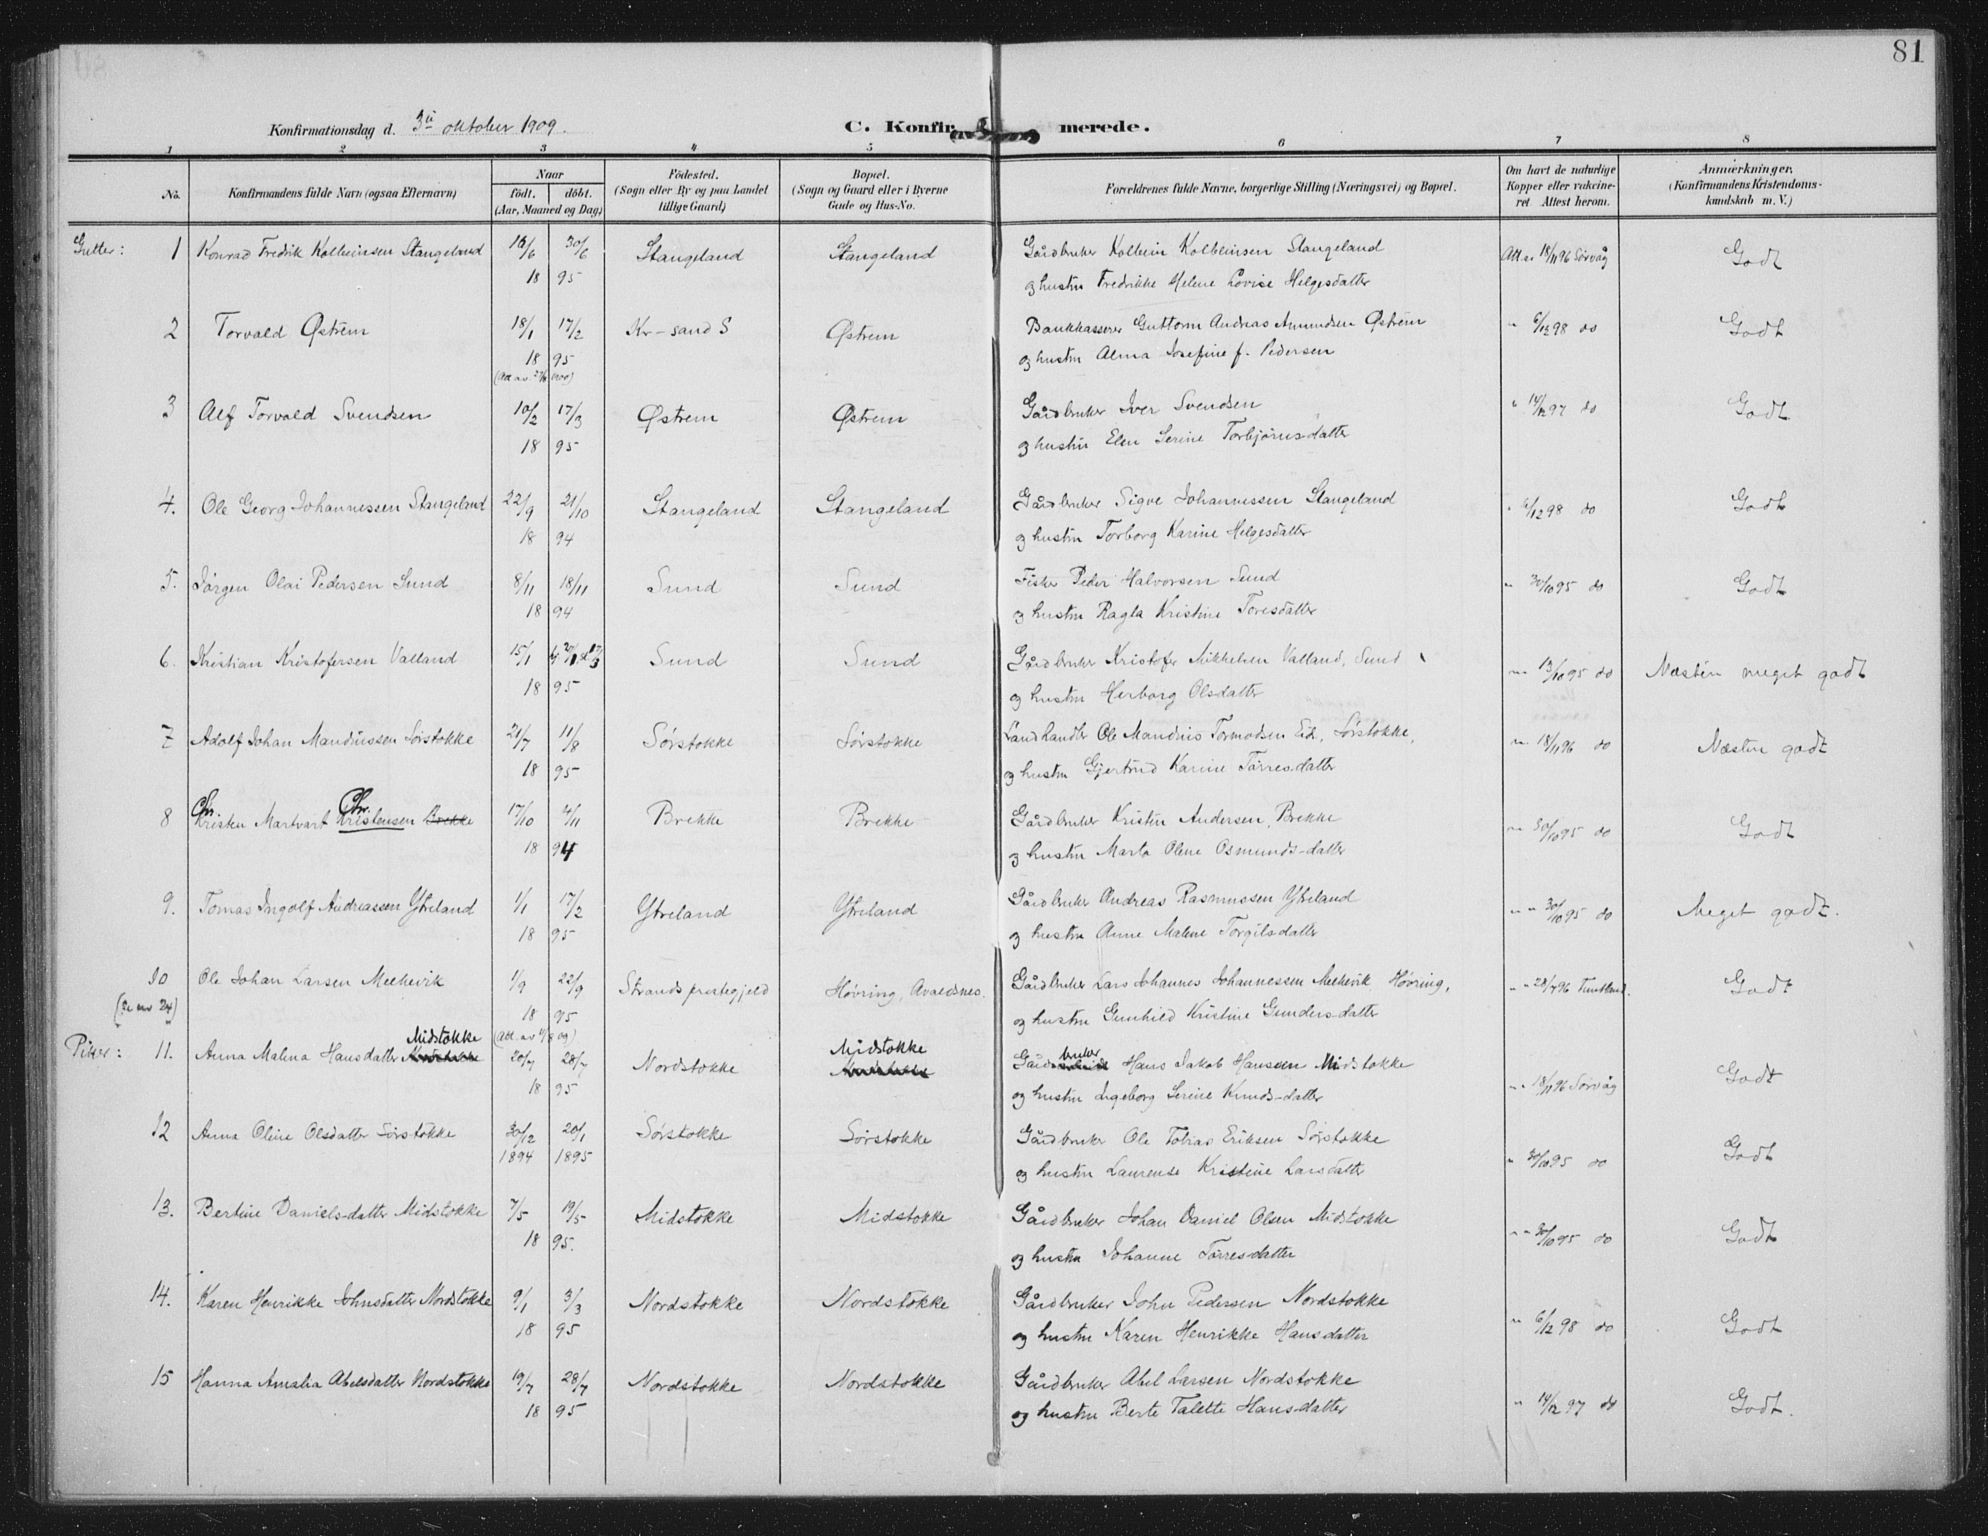 81
Konfirmationsdag d. 3die oktober 1909.
C. Konfirmerede.
1 2 3 4 5 6 7 8
No. Konfirmandens fulde Navn (ogsaa Efternavn) Naar født. døbt. (Aar, Maaned og Dag) Fødested. (Sogn eller By og paa Landet tillige Gaard) Bopæl. (Sogn og Gaard eller i Byerne Gade og Hus-No. Forældrenes fulde Navne, borgerlige Stilling (Næringsvei) og Bopæl. Om havt de naturlige Kopper eller vakcineret Attest herom. Anmærkninger. (Konfirmandens Kristendomskundskab m. V.)
Gutter: 1 Konrad Fredrik Kolbeinsen Stangeland 16/6 30/6 Stangeland Stangeland Gårdbruker Kolbein Kolbeinsen Stangeland Att. av 18/11 96 Sørvåg Godt
18 95 og hustru Fredrikke Helene Lovise Helgesdatter
2 Torvald Østrem 18/1 17/2 Kr-sand S Østrem Bankkasserer Guttorm Andreas Amundsen Østrem " 6/12 98 do Godt
18 95 og hustru Alma Josefine f. Pedersen
3 Alf Torvald Svendsen 10/2 17/3 Østrem Østrem Gårdbruker Iver Svendsen " 14/12 97 do Godt
18 95 og hustru Elen Serine Torbjørnsdatter
4. Ole Georg Johannessen Stangeland 22/9 21/10 Stangeland Stangeland Gårdbruker Sigve Johannessen Stangeland " 6/12 98 do Godt
18 94 og hustru Torborg Karine Helgesdatter
5. Jørgen Olai Pedersen Sund 8/11 18/11 Sund Sund Fisker Peder Halvorsen Sund " 30/10 95 do Godt
18 94 og hustru Ragla Kristine Toresdatter
6. Kristian Kristofersen Valland 15/1 Sund Sund Gårdbruker Kristofer Mikkelsen Valland, Sund " 13/10 95 do Næsten meget godt
18 95 og hustru Herborg Olsdatter
7 Adolf Johan Mandiussen Sørstokke 21/7 11/8 Sørstokke Sørstokke Landhandler Ole Mandius Tormodsen Eid, Sørstokke, " 18/11 96 do Næsten godt
18 95 og hustru Gjertrud Karine Tørresdatter
8 Kristen Martvart Kristensen Brekke 17/10 4/11 Brekke Brekke Gårdbruker Kristen Andersen, Brekke " 30/10 95 do Godt
18 94 og hustru Marta Oline Osmunds-datter
9. Tomas Ingolf Andreassen Ytreland 1/1 17/2 Ytreland Ytreland Gårdbruker Andreas Rasmussen Ytreland " " 30/10 95 do Meget godt.
18 95 og hustru Anne Malene Torgilsdatter
10 Ole Johan Larsen Meekevik 1/9 22/9 Strands prestegjeld Høvring, Avaldsnes. Gårdbruker Lars Johannes Johannessen Meekevik Høvring, " " 28/7 96 Godt
(Se nr 24) 18 95 og hustru Gunhild Kristine Gunders-datter
Piker: 11. Anna Malena Hansdatter Midstokke 20/7 28/7 Nordstokke Midstokke Gårdbruker Hans Jakob Hanssen Midstokke " " 18/11 96 Sørvåg Godt
18 95 og hustru Ingeborg Serine Knuds-datter
12 Anna Oline Olsdatter Sørstokke 30/12 20/1 Sørstokke Sørstokke Gårdbruker Ole Tobias Eriksen Sørstokke " 30/10 95 do Godt
1894 1895 og hustru Laurense Kristine Larsdatter
13. Bertine Daniels-datter Midstokke 7/5 19/5 Midstokke Midstokke Gårdbruker Johan Daniel Olsen Midstokke " " 30/10 95 do Godt
18 95. og hustru Johanne Tørres-datter
14. Karen Henrikke Johnsdatter Nordstokke 9/1 3/3 Nordstokke Nordstokke Gårdbruker John Pedersen Nordstokke " 6/12 98 do Godt
18 95 og hustru Karen Henrikke Hansdatter
15 Hanna Amalia Abelsdatter Nordstokke 19/7 28/7 Nordstokke Nordstokke Gårdbruker Abel Larsen Nordstokke " 14/12 97 do Godt.
18 95 og hustru Berte Talette Hans-datter